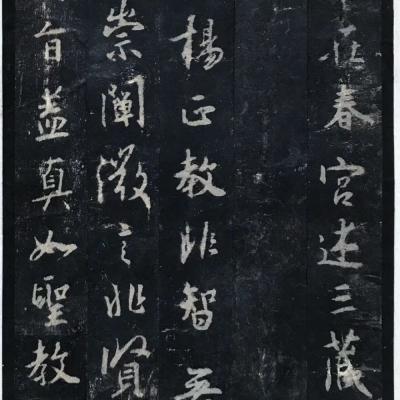 在春宮述三藏
楊正教非智無
崇闡微言非賢
旨盖真如聖教